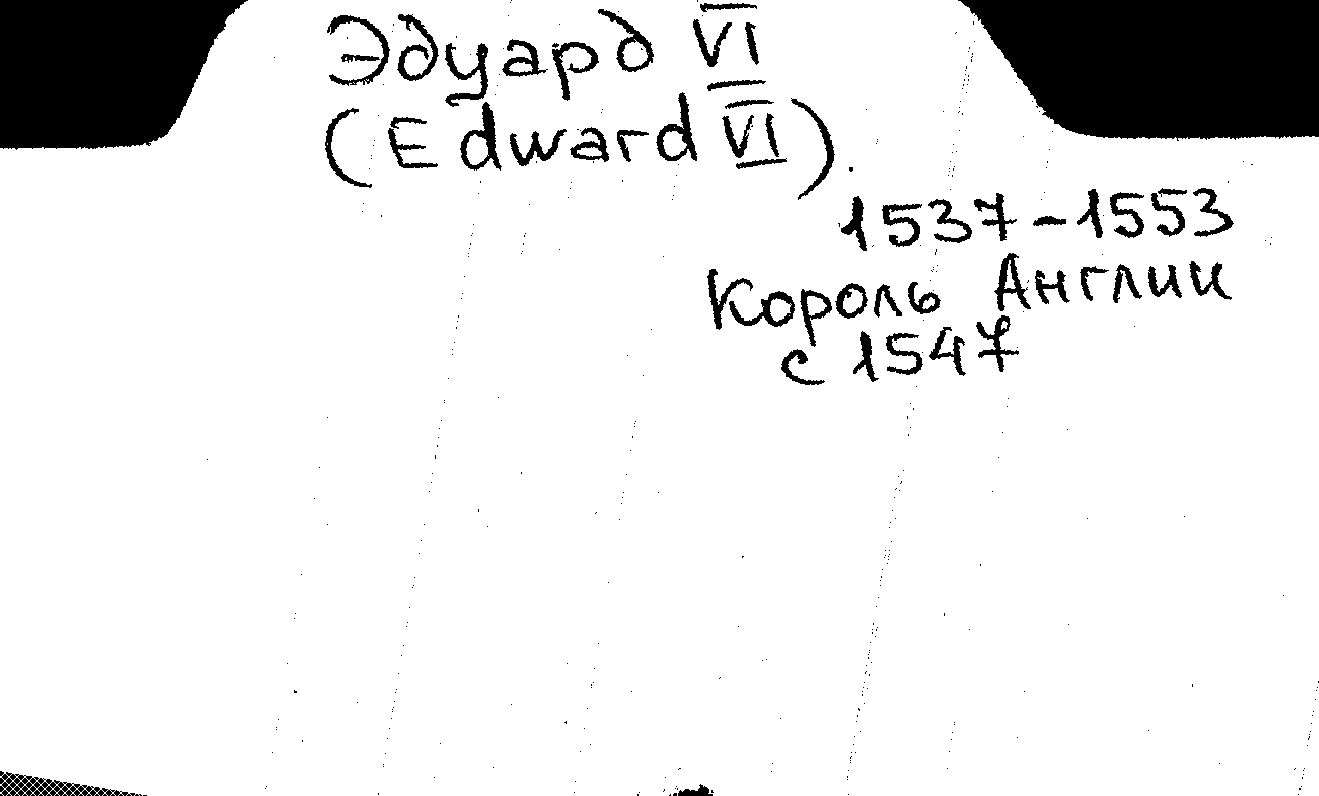 Эдуард VI
(Edward VI).
1537-1553
Король Англии
с 1547